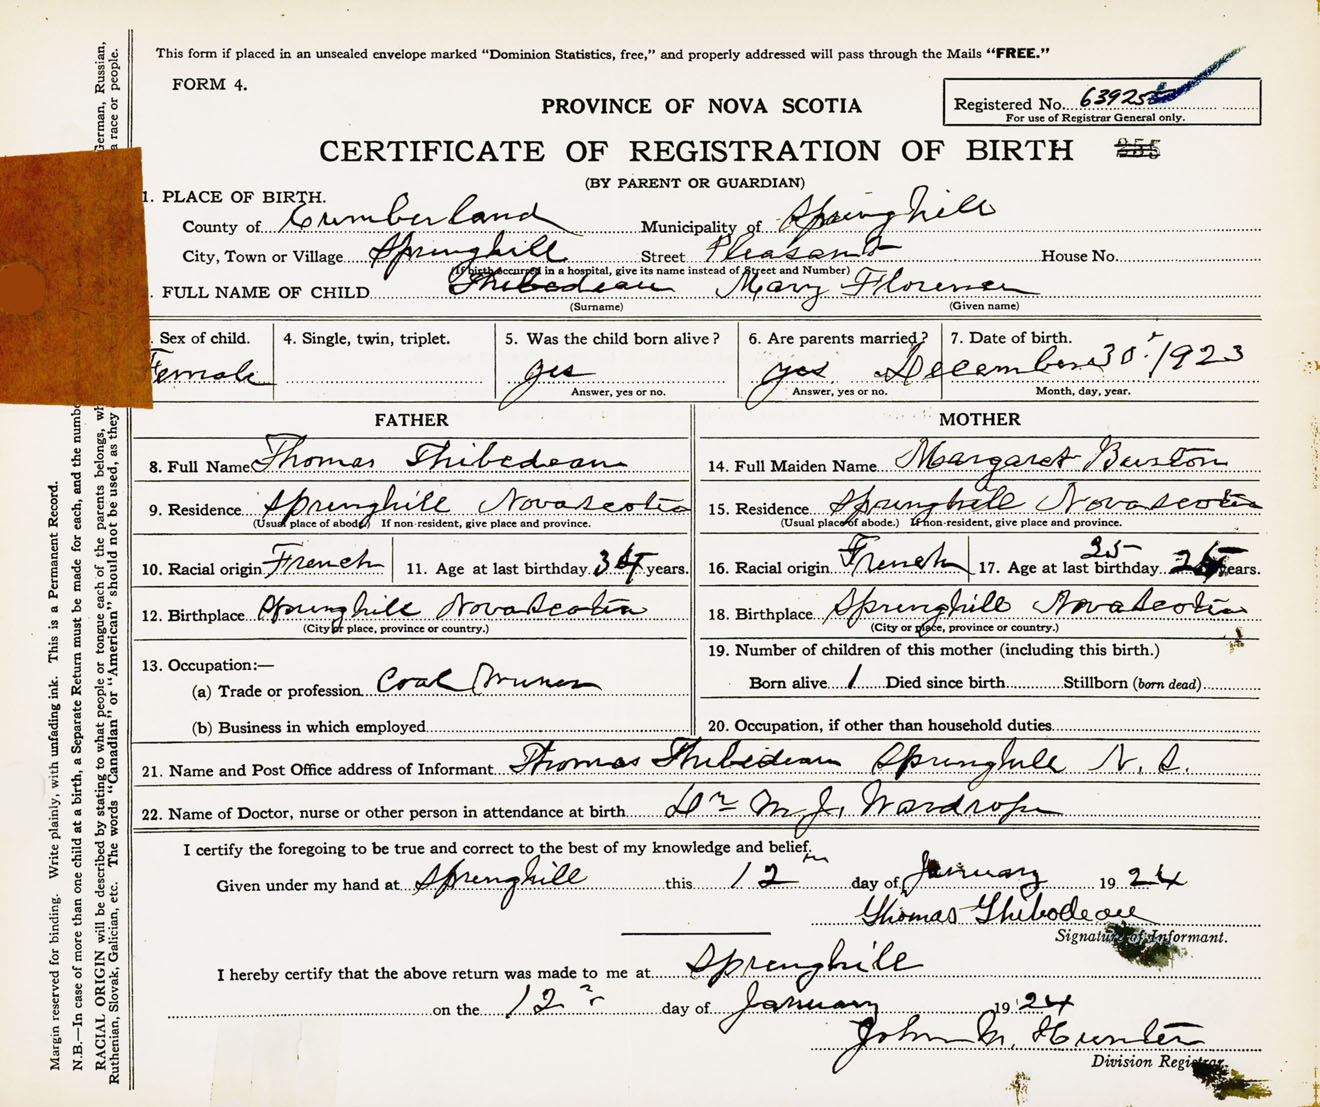 This form if placed in an unsealed envelope marked "Dominion Statistics, free," and properly addressed will pass through the Mails "FREE."
FORM 4.
PROVINCE OF NOVA SCOTIA
Registered No. 639255
For use of Registrar General only.
CERTIFICATE OF REGISTRATION OF BIRTH 255
(BY PARENT OR GUARDIAN)
1. PLACE OF BIRTH.
County of Cumberland Municipality of Springhill
City, Town or Village Springhill Street Pleasant House No.
(If birth occurred in a hospital, give its name instead of Street and Number)
. FULL NAME OF CHILD Thibedeau Mary Florence
(Surname) (Given name)
. Sex of child. 4. Single, twin, triplet. 5. Was the child born alive? 6. Are parents married? 7. Date of birth.
Female yes yes December 30 1923
Answer, yes or no. Answer, yes or no. Month, day, year.
FATHER MOTHER
8. Full Name Thomas Thibedeau 14. Full Maiden Name Margaret Burton
9. Residence Springhill Nova Scotia 15. Residence Springhill Nova Scotia
(Usual place of abode) If non-resident, give place and province. (Usual place of abode.) If non-resident, give place and province.
10. Racial origin French 11. Age at last birthday 34 years. 16. Racial origin French 17. Age at last birthday 25 25 years.
12. Birthplace Springhill Nova Scotia 18. Birthplace Springhill Nova Scotia
(City or place, province or country.) (City or place, province or country.)
13. Occupation:— 19. Number of children of this mother (including this birth.)
(a) Trade or profession Coal Miner Born alive 1 Died since birth Stillborn (born dead)
(b) Business in which employed 20. Occupation, if other than household duties
21. Name and Post Office address of Informant Thomas Thibedeau Springhill N. S.
22. Name of Doctor, nurse or other person in attendance at birth Dr M. J. Wardrope
I certify the foregoing to be true and correct to the best of my knowledge and belief.
Given under my hand at Springhill this 12th day of January 1924
Thomas Thibodeau
Signature of Informant.
I hereby certify that the above return was made to me at Springhill
on the 12 day of January 1924
John M. Hunter
Division Registrar.
Margin reserved for binding. Write plainly, with unfading ink. This is a Permanent Record.
N.B.—In case of more than one child at a birth, a Separate Return must be made for each, and the numb
RACIAL ORIGIN will be described by stating to what people or tongue each of the parents belongs, wh German, Russian,
Ruthenian, Slovak, Galician, etc. The words "Canadian" or "American" should not be used, as they a race or people.